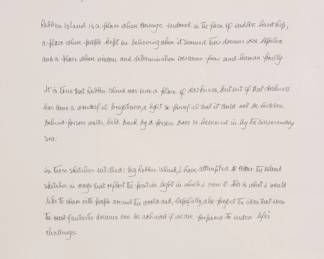 Robben Island is a place where courage endured in the face of endless hardship,
a place where people kept on believing when it seemed their dreams were hopeless
and a place where wisdom and determination overcame fear and human frailty.
It is true that Robben Island was once a place of darkness, but out of that darkness
has come a wonderful brightness, a light so powerful that it could not be hidden
behind prison walls, held back by prison bars or hemmed in by the surrounding
sea.
In these sketches entitled: My Robben Island, I have attempted to colour the island
sketches in ways that reflect the positive light in which I view it. This is what I would
like to share with people around the world and, hopefully, also project the idea that even
the most fantastic dreams can be achieved if we are prepared to endure life's
challenges.